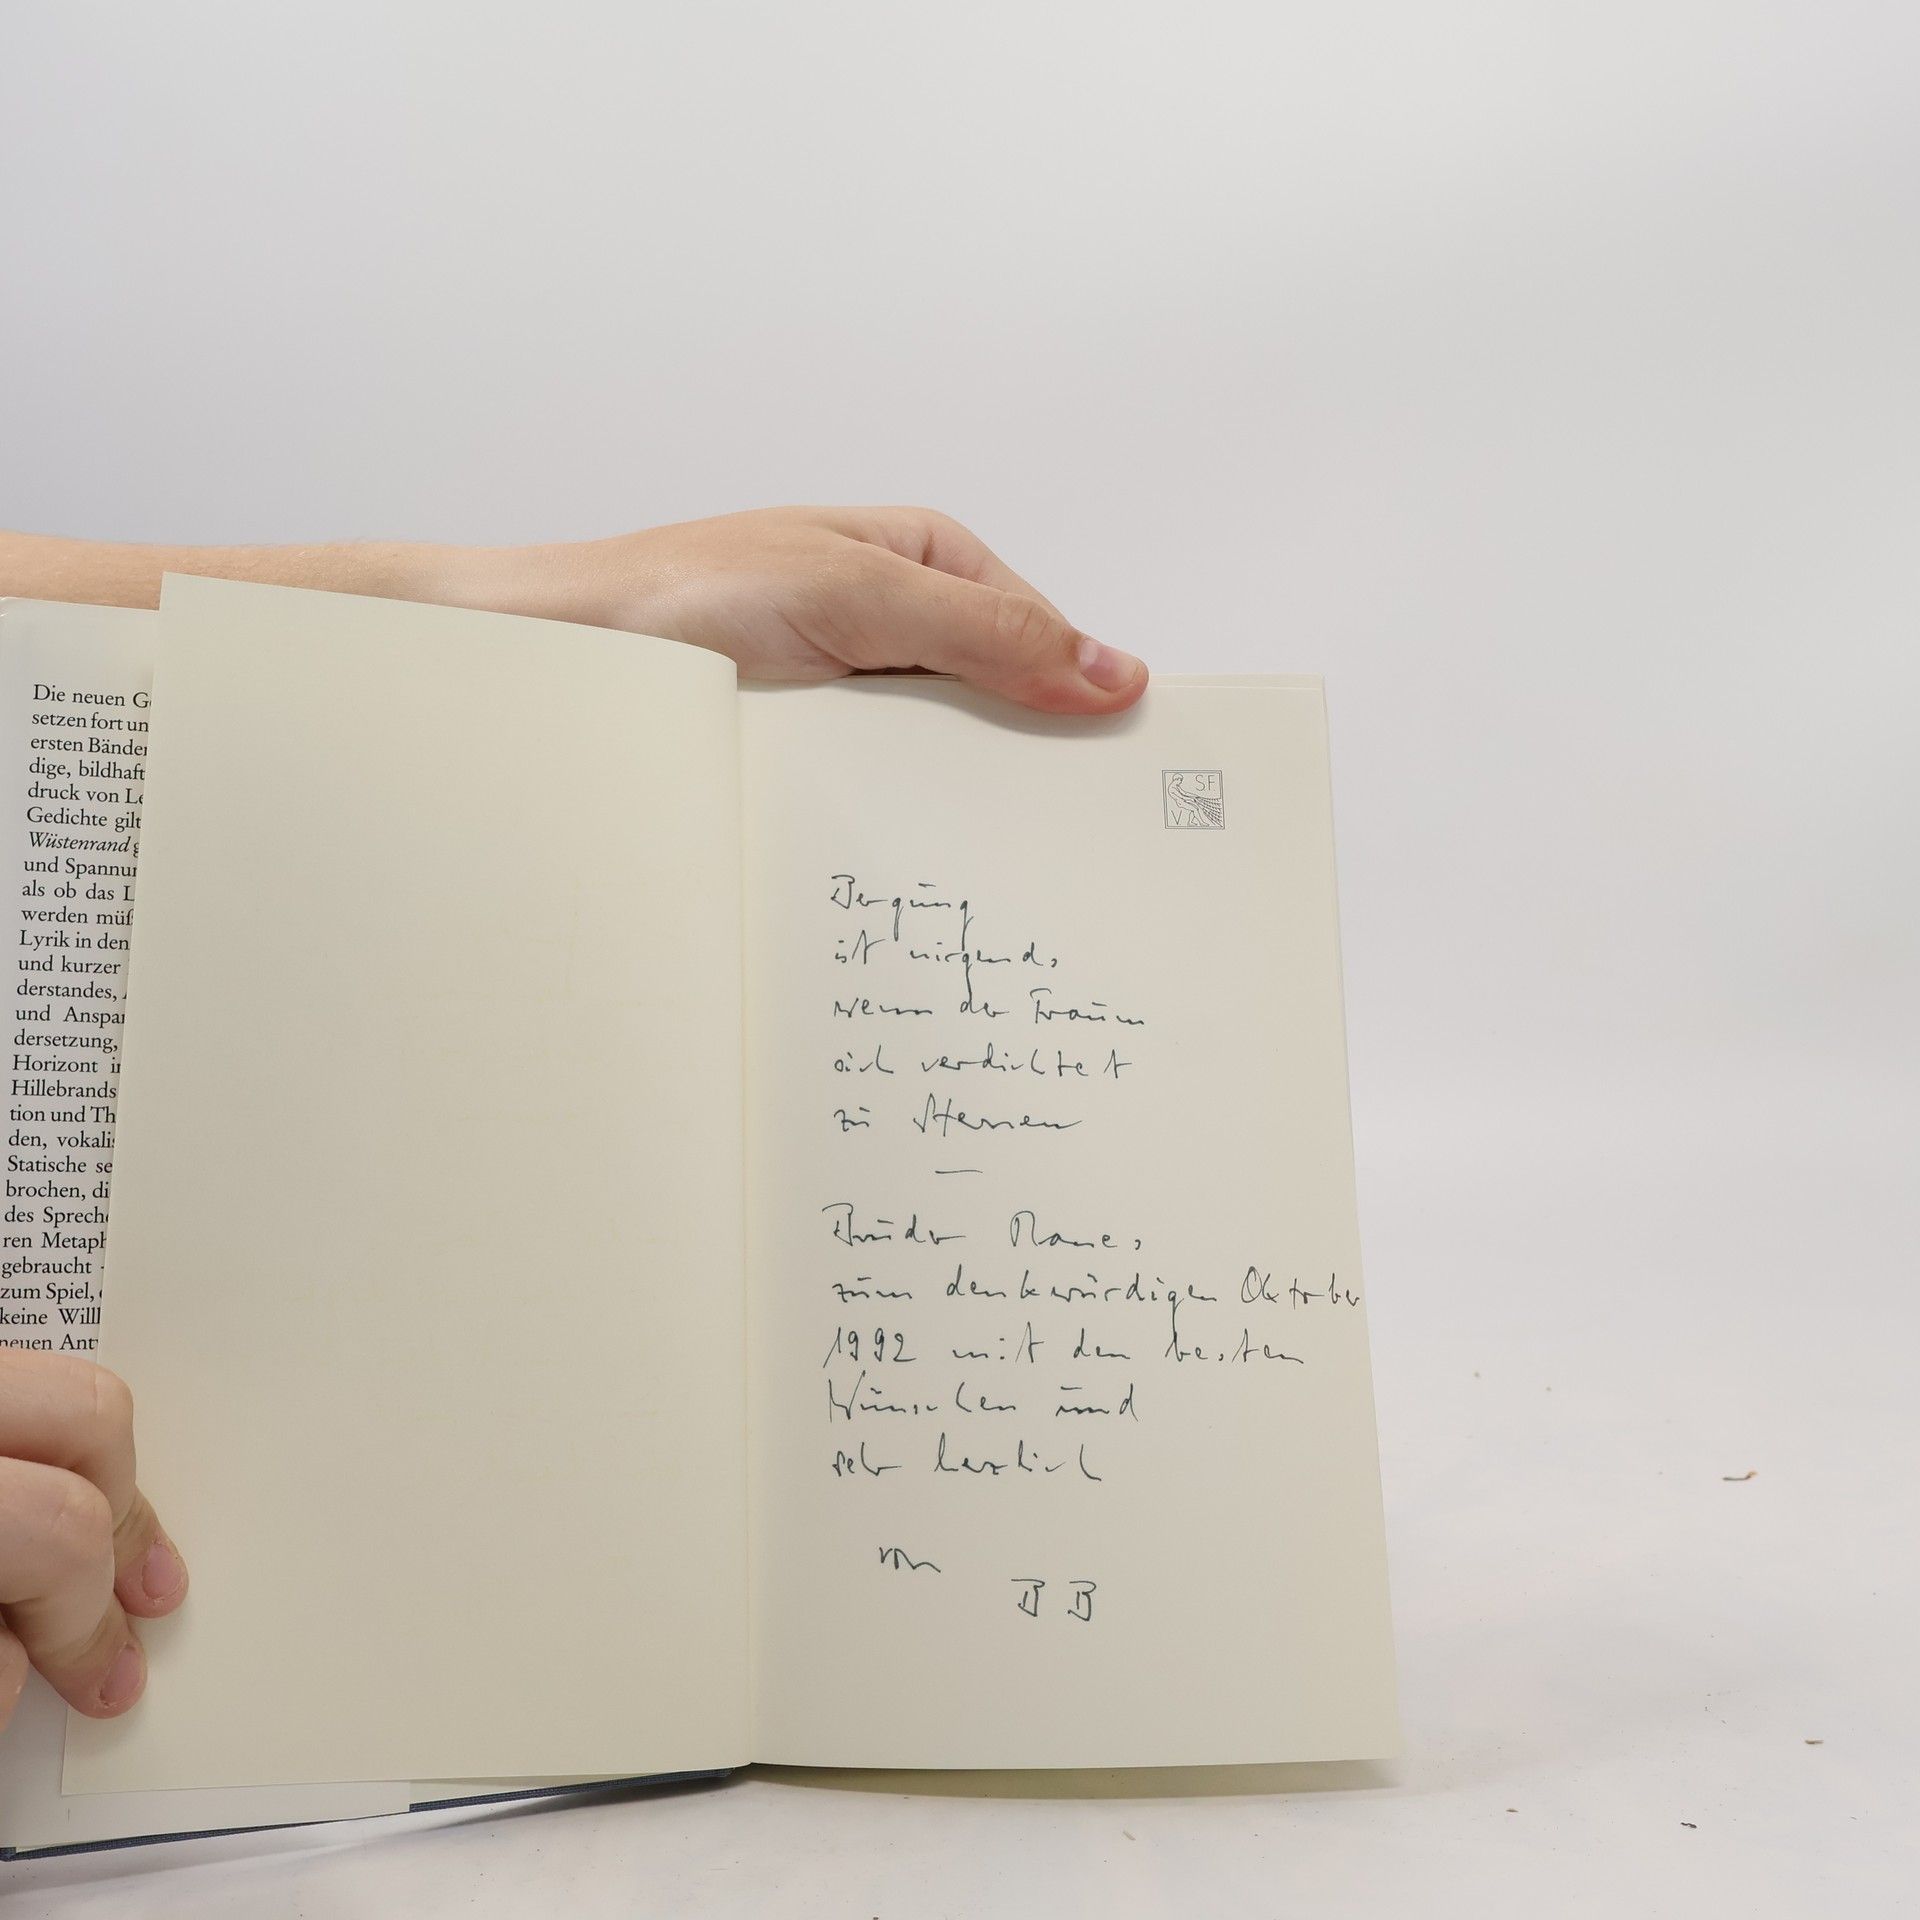 Die neuen
setzen fort un
ersten Bänden
dige, bildhaft
druck von Le
Gedichte gilt
Wüstenrand g
und Spannun
als ob das L
werden müß
Lyrik in den
und kurzer
derstandes,
und Anspan
dersetzung,
Horizont in
Hillebrands
tion und Th
den, vokalis
Statische se
brochen, di
des Spreche
ren Metaph
gebraucht -
zum Spiel,
keine Willk
neuen Antw
SF
V
Bergung
ist nirgends
wenn der Traum
sich verdichtet
zu Sternen
—
Bruder
zum denkwürdigen Oktober
1992 mit den besten
Wünschen und
sehr herzlich
von
B B